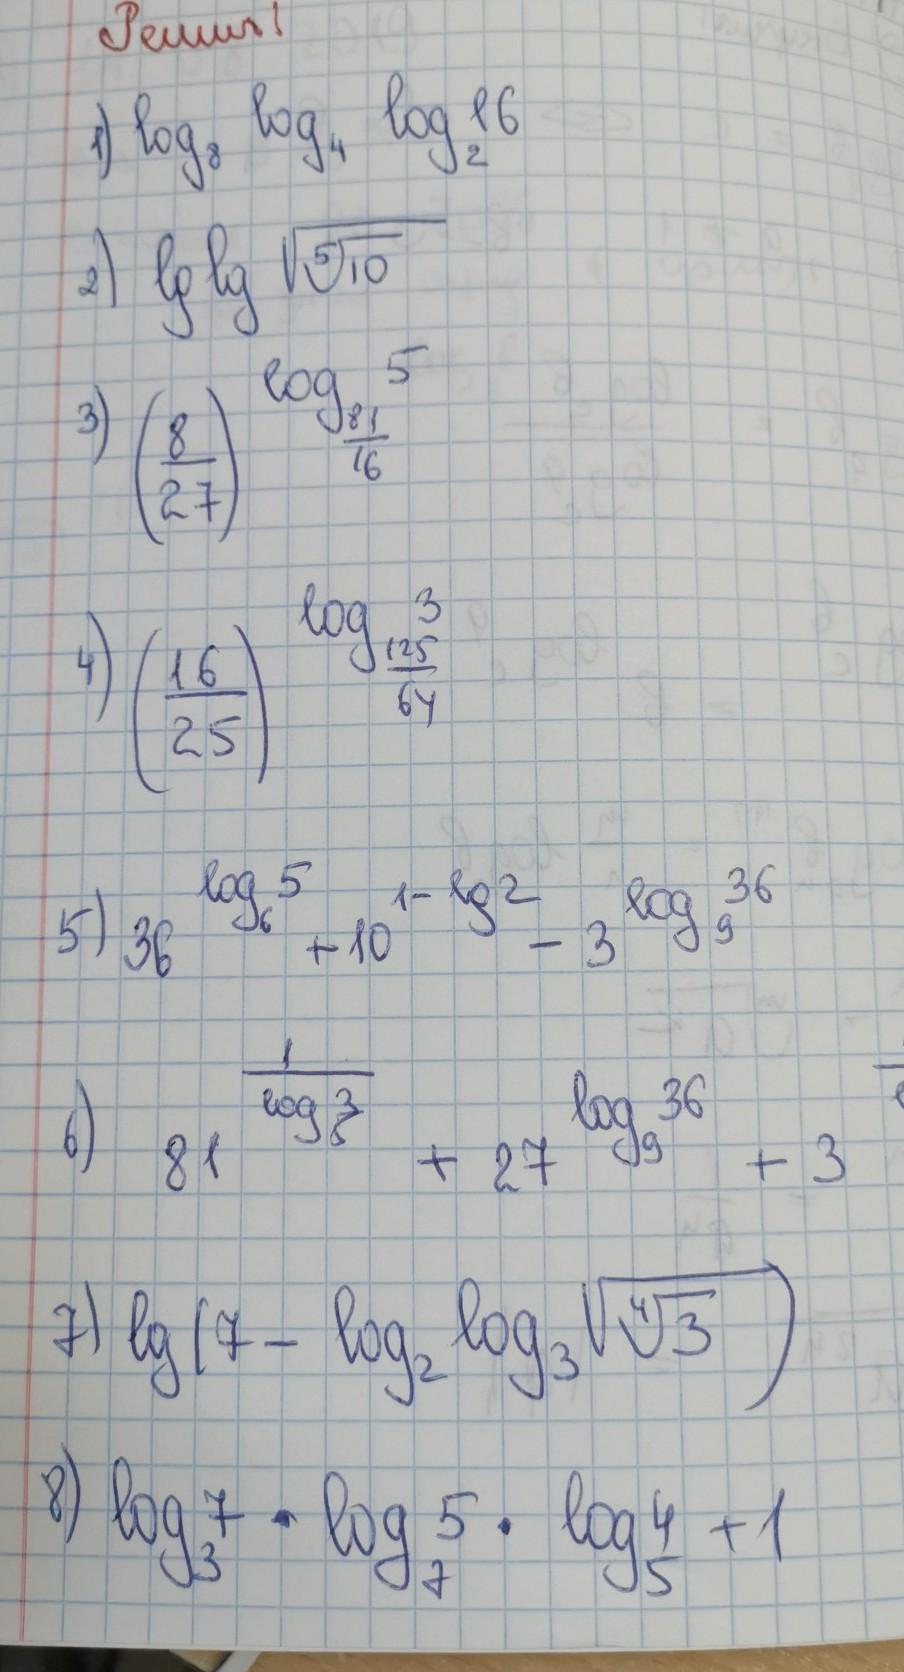 Реши!
1) log₈ log₄ log₂ 16
2) lg lg √(⁵√10)
3) (8/27)^(log_(81/16) 5)
4) (16/25)^(log_(125/64) 3)
5) 36^(log₆ 5) + 10^(1-lg 2) - 3^(log₉ 36)
6) 81^(1/log₅ 3) + 27^(log₉ 36) + 3
7) lg(7 - log₂ log₃ √(⁴√3))
8) log₃ 7 · log₇ 5 · log₅ 4 + 1